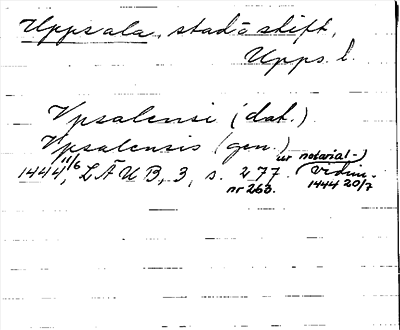 Uppsala, stad o stift,
Upps. l.
Vpsalensi (dat.)
Vpsalensis (gen.)
ur notarial-)
1444 11/6, LÄUB, 3, s. 277. (vidim.
nr 263. 1444 20/7